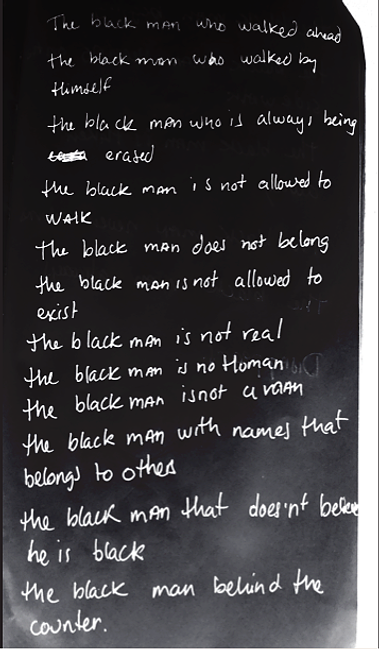 The black man who walked ahead
the black man who walked by
Himself
the black man who is always being
erased
the black man is not allowed to
walk
The black man does not belong
the black man is not allowed to
exist
the black man is not real
the black man is no Human
the black man is not a man
the black man with names that
belongs to other
the black man that does'nt believe
he is black
the black man behind the
counter.